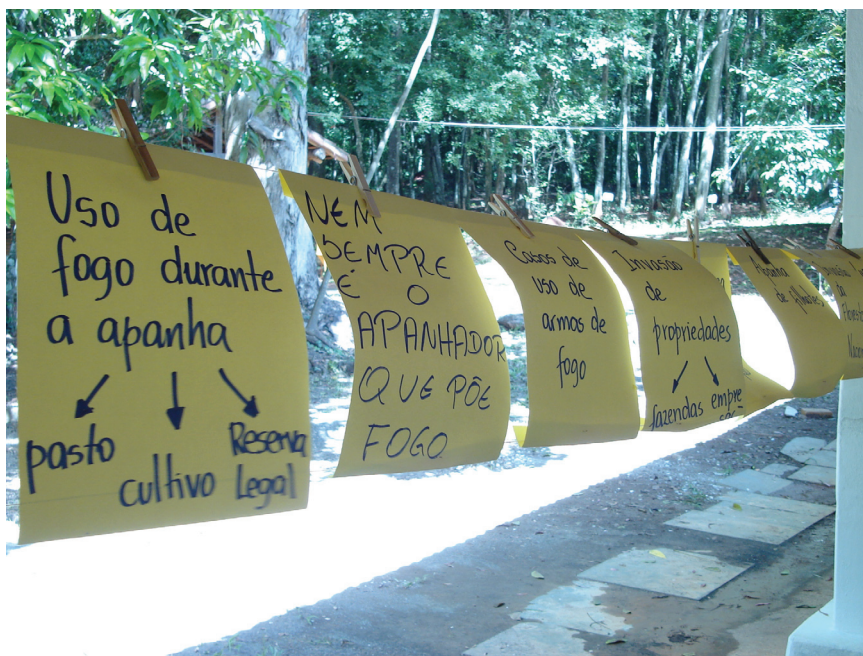 Uso de
fogo durante
a apanha
pasto
cultivo
Reserva
Legal
NEM
SEMPRE
É O
APANHADOR
QUE PÕE
FOGO
Casos de
uso de
armas de
fogo
Invasão
de
propriedades
fazendas empre
Apanha
de filhotes
da